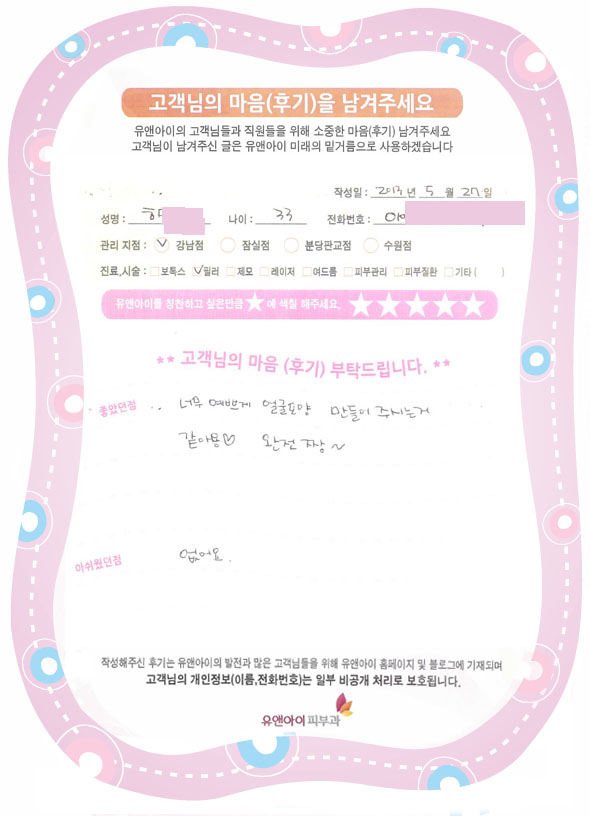 고객님의 마음(후기)을 남겨주세요
유앤아이의 고객님들과 직원들을 위해 소중한 마음(후기) 남겨주세요
고객님이 남겨주신 글은 유앤아이 미래의 밑거름으로 사용하겠습니다
작성일 : 2013 년 5 월 27 일
성명 : 나이 : 33 전화번호 :
관리 지점 : 강남점 잠실점 분당판교점 수원점
진료,시술 : 보톡스 필러 제모 레이저 여드름 피부관리 피부질환 기타 ( )
유앤아이를 칭찬하고 싶은만큼 ★ 에 색칠 해주세요. ★★★★★
** 고객님의 마음 (후기) 부탁드립니다. **
좋았던점 너무 예쁘게 얼굴모양 만들어 주시는거
같아용♡ 완전 짱~
아쉬웠던점 없어요.
작성해주신 후기는 유앤아이의 발전과 많은 고객님들을 위해 유앤아이 홈페이지 및 블로그에 기재되며
고객님의 개인정보(이름,전화번호)는 일부 비공개 처리로 보호됩니다.
유앤아이피부과